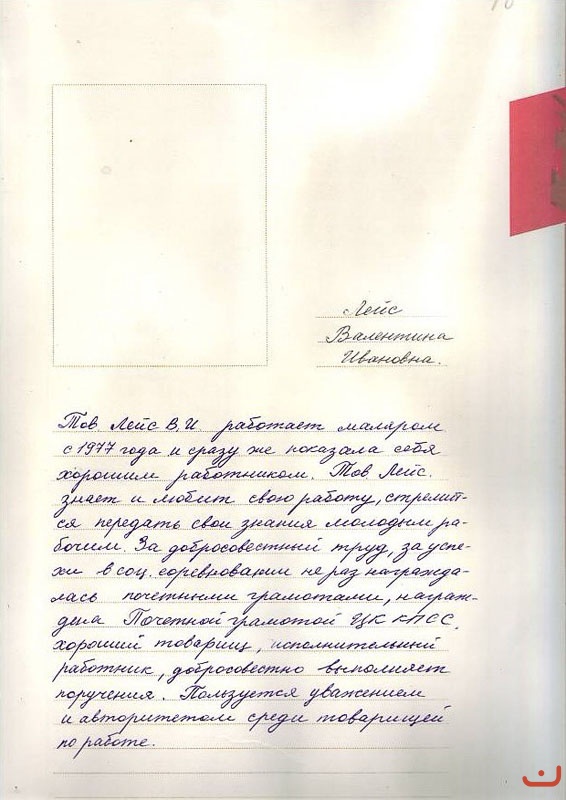 Лейс
Валентина
Ивановна.
Тов. Лейс В.И. работает маляром
с 1977 года и сразу же показала себя
хорошим работником. Тов Лейс.
знает и любит свою работу, стремит-
ся передать свои знания молодым ра-
бочим. За добросовестный труд, за успе-
хи в соц. соревновании не раз награжда-
лась почетными грамотами, награж-
дена Почетной грамотой ЦК КПСС,
хороший товарищ, исполнительный
работник, добросовестно выполняет
поручения. Пользуется уважением
и авторитетом среди товарищей
по работе.